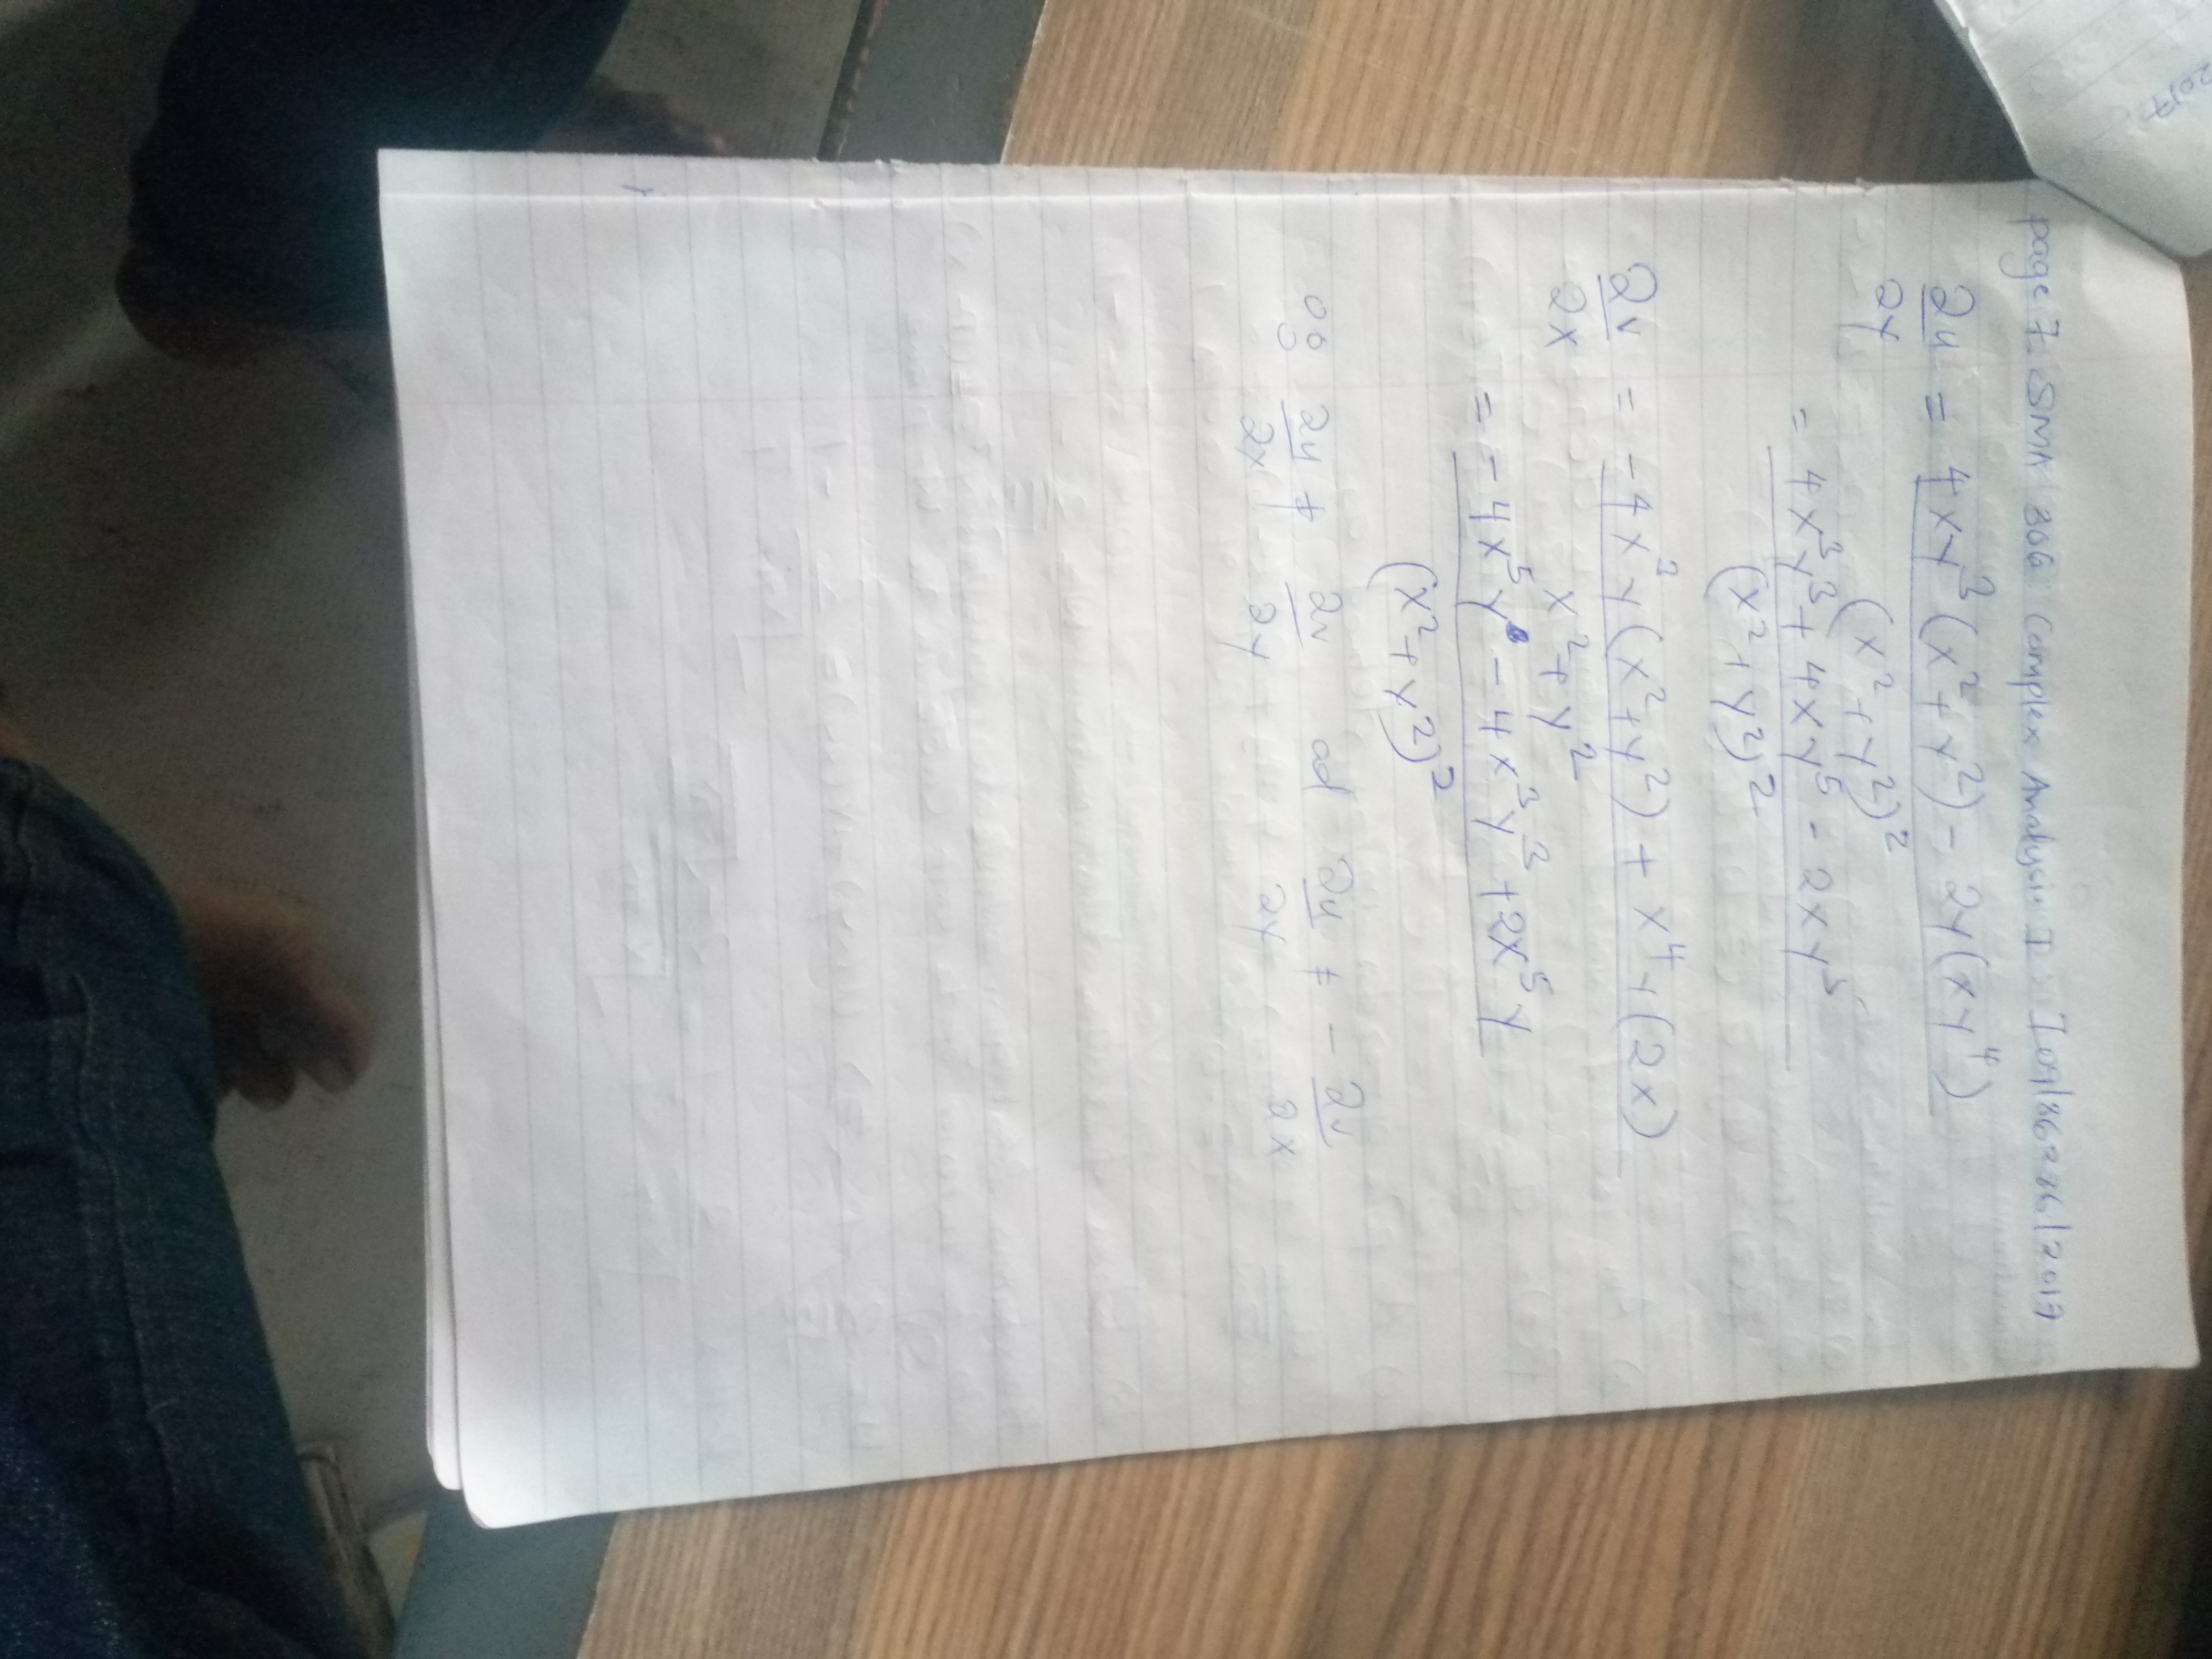 page 7. SMA 306 Complex Analysis I. I07/86286/2017
∂u/∂y = 4xy³(x²+y²) - 2y(xy⁴) / (x²+y²)²
= 4x³y³ + 4xy⁵ - 2xy⁵ / (x²+y²)²
∂v/∂x = -4x²y(x²+y²) + x⁴y(2x) / x²+y²
= -4x⁵y - 4x³y³ + 2x⁵y / (x²+y²)²
∂u/∂x ≠ ∂v/∂y ad ∂u/∂y ≠ - ∂v/∂x
2017